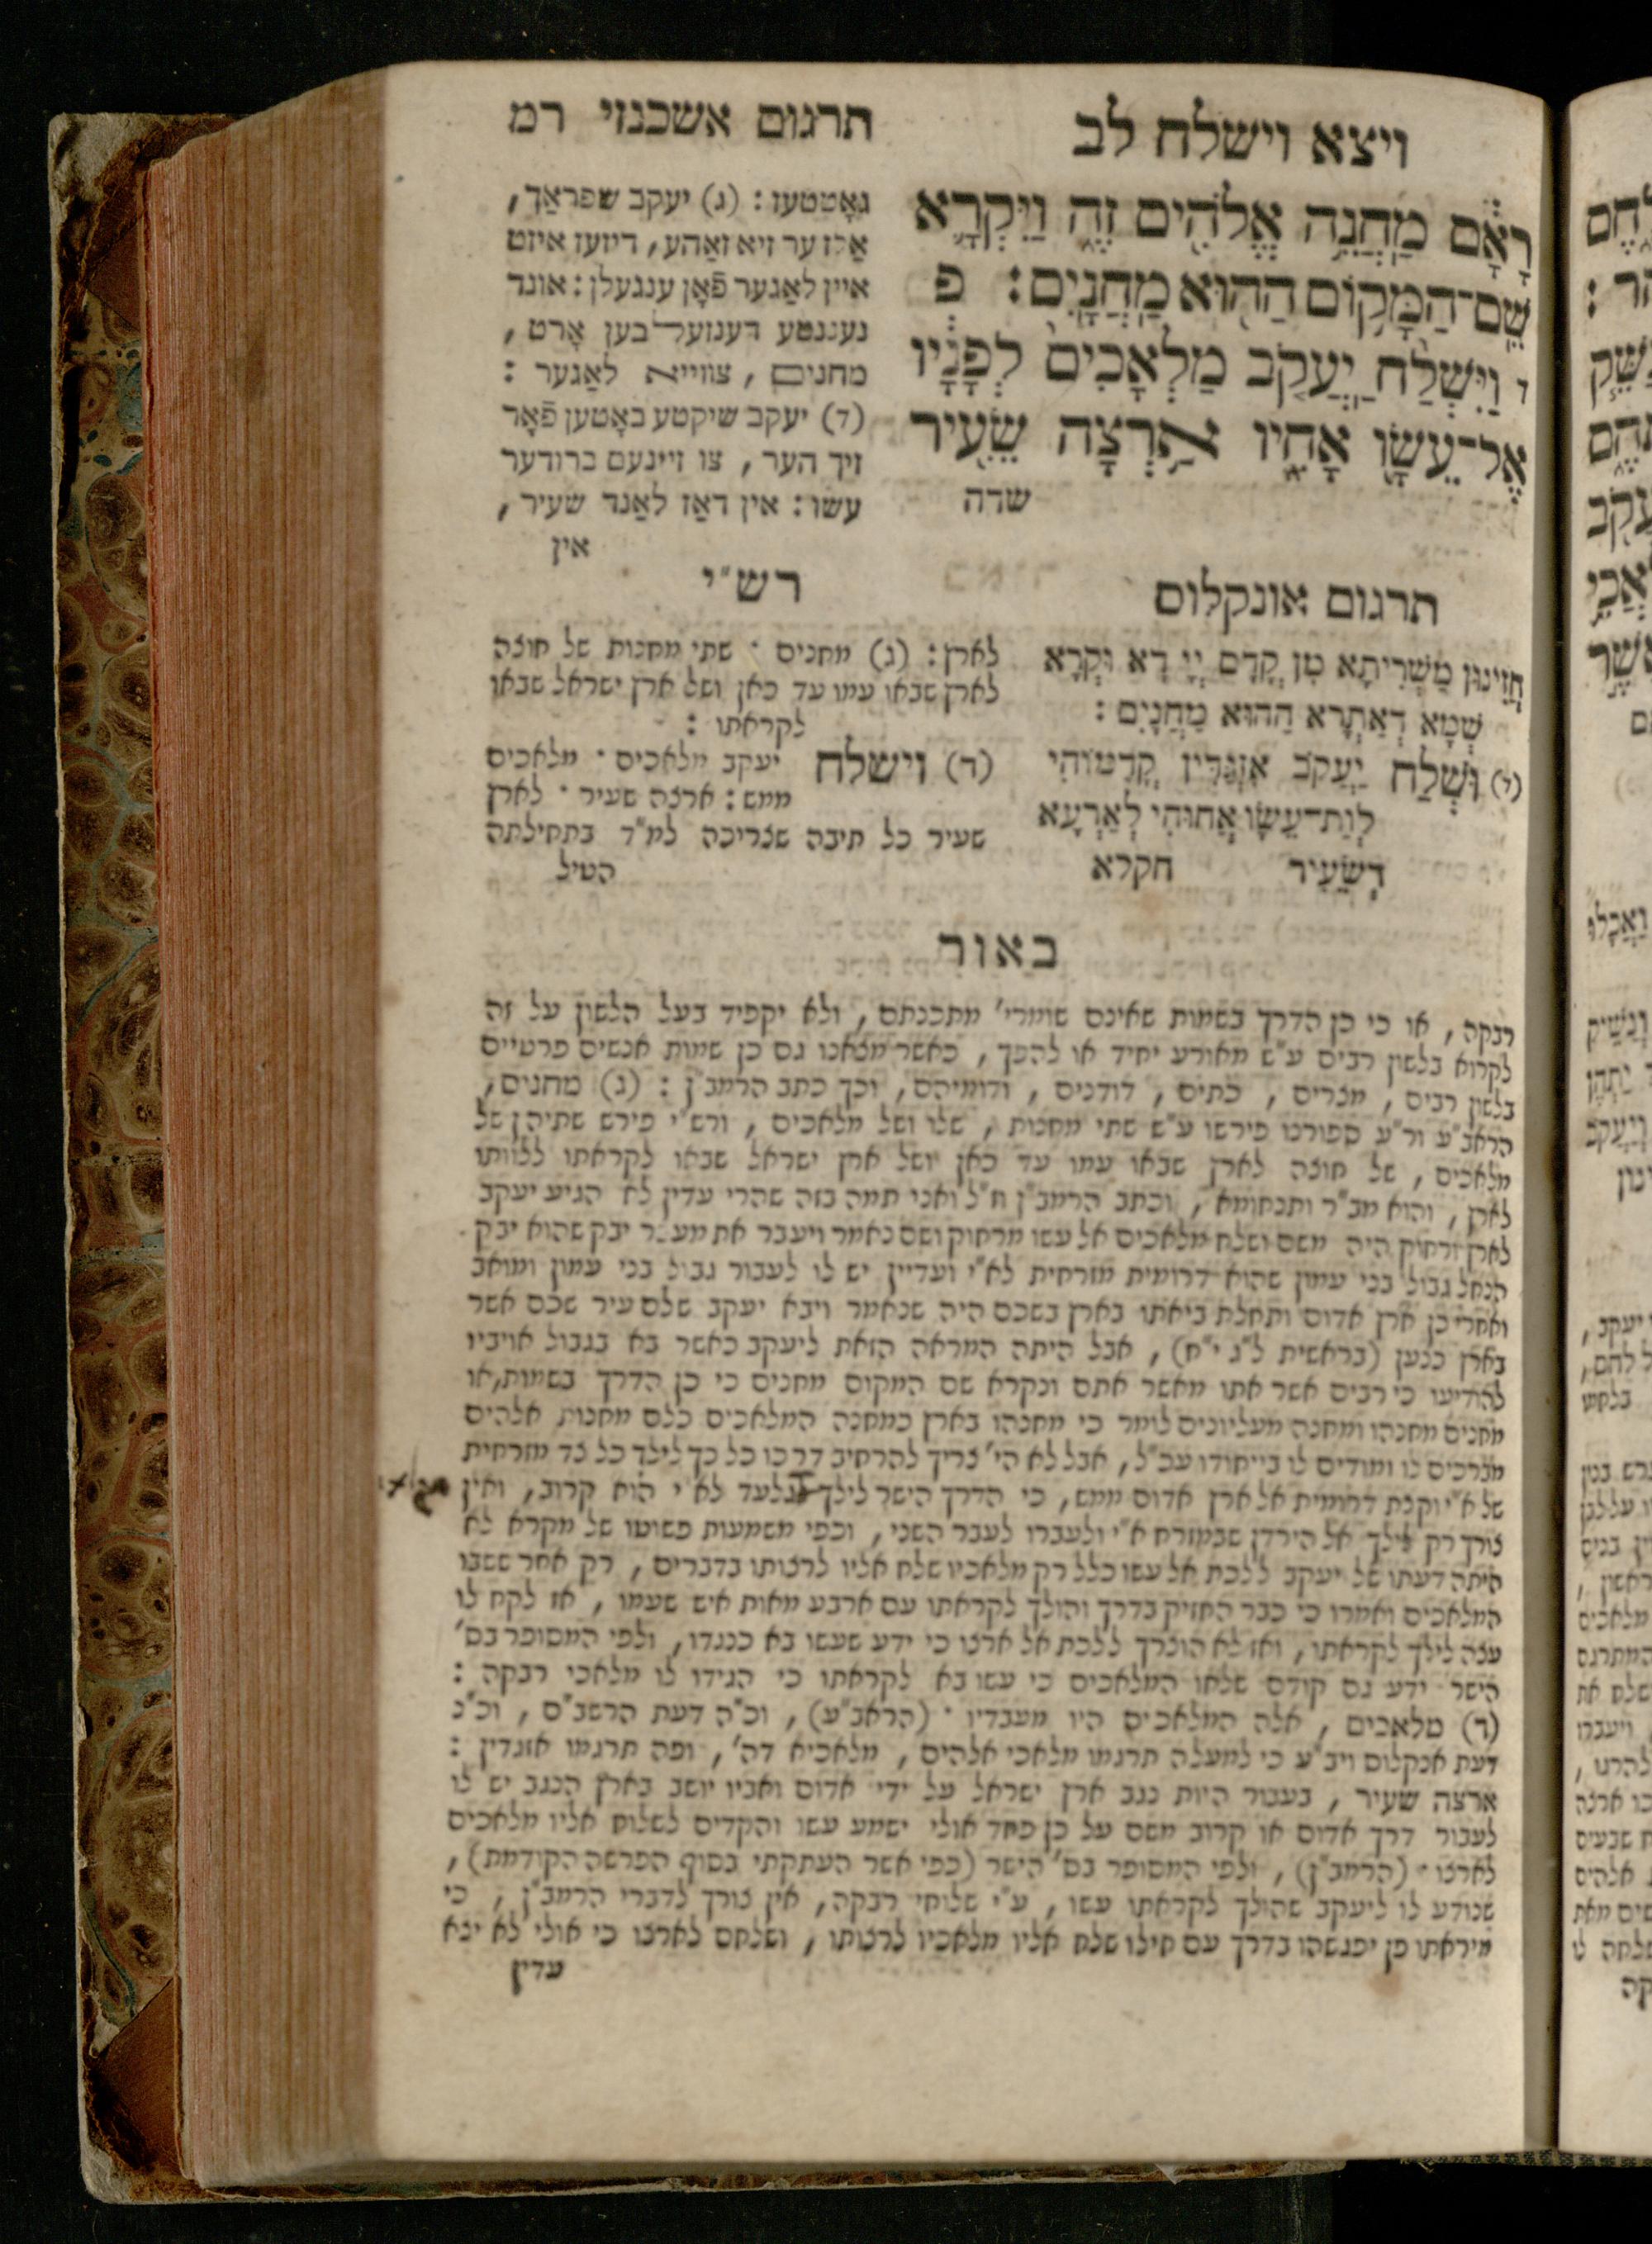 ויצא וישלח לב
תרגום אשכנזי רמ
רָאָ֔ם מַחֲנֵ֥ה אֱלֹהִ֖ים זֶ֑ה וַיִּקְרָ֛א
שֵֽׁם־הַמָּק֥וֹם הַה֖וּא מַֽחֲנָֽיִם: פ
ד וַיִּשְׁלַ֨ח יַעֲקֹ֤ב מַלְאָכִים֙ לְפָנָ֔יו
אֶל־עֵשָׂ֖ו אָחִ֑יו אַ֥רְצָה שֵׂעִ֖יר
שדה
גאָטטעז: (ג) יעקב שפראַך,
אַלז ער זיא זאַהע, דיזעז איזט
איין לאַגער פֿאָן ענגעלן: אונד
נעננטע דענזעלבען אָרט,
מחנים, צווייא לאַגער:
(ד) יעקב שיקטע באָטען פֿאָר
זיך הער, צו זיינעם ברודער
עשו: אין דאַז לאַנד שעיר,
אין
תרגום אונקלוס
חֲזֵינוּן מַשְׁרִיתָא מִן קֳדָם יְיָ דָא וּקְרָא
שְׁמָא דְאַתְרָא הַהוּא מַחֲנָיִם:
(ד) וּשְׁלַח יַעֲקֹב אִזְגַּדִּין קֳדָמוֹהִי
לְוַת־עֵשָׂו אֲחוּהִי לְאַרְעָא
דְשֵׂעִיר חקלא
רש"י
לארץ: (ג) מחנים · שתי מחנות של חוצה
לארץ שבאו עמו עד כאן ושל ארץ ישראל שבאו
לקראתו:
(ד) וישלח יעקב מלאכים · מלאכים
ממש: ארצה שעיר · לארץ
שעיר כל תיבה שצריכה למ"ד בתחילתה
הטיל
באור
רבקה, או כי כן הדרך בשמות שאינם שומרי' מתכנתם, ולא יקפיד בעל הלשון על זה
לקרוא בלשון רבים ע"ש מאורע יחיד או להפך, כאשר מצאנו גם כן שמות אנשים פרטיים
בלשון רבים, מצרים, כתים, דודנים, ודומיהם, וכך כתב הרמב"ן: (ג) מחנים,
הראב"ע ור"ע ספורנו פירשו ע"ש שתי מחנות, שלו ושל מלאכים, ורש"י פירש שתיהן של
מלאכים, של חוצה לארץ שבאו עמו עד כאן ושל ארץ ישראל שבאו לקראתו ללוותו
לארץ, והוא מב"ר ותנחומא, וכתב הרמב"ן וז"ל ואני תמה בזה שהרי עדין לא הגיע יעקב
לארץ ורחוק היה משם ושלח מלאכים אל עשו מרחוק ושם נאמר ויעבר את מעבר יבק שהוא יבק
הנחל גבול בני עמון שהוא דרומית מזרחית לא"י ועדיין יש לו לעבור גבול בני עמון ומואב
ואחרי כן ארץ אדום ותחלת ביאתו בארץ בשכם היה שנאמר ויבא יעקב שלם עיר שכם אשר
בארץ כנען (בראשית ל"ג י"ח), אבל היתה המראה הזאת ליעקב כאשר בא בגבול אויביו
להודיעו כי רבים אשר אתו מאשר אתם ונקרא שם המקום מחנים כי כן הדרך בשמות, או
מחנים מחנהו ומחנה מעליונים לומר כי מחנהו בארץ כמחנה המלאכים כלם מחנות אלהים
מברכים לו ומודים לו בייחודו עכ"ל, אבל לא הי' צריך להרחיב דרכו כל כך לילך כל צד מזרחית
של א"י וקצת דרומית אל ארץ אדום ממש, כי הדרך הישר לילך מגלעד לא"י הוא קרוב, ואין
צורך רק לילך אל הירדן שבמזרח א"י ולעברו לעבר השני, וכפי משמעות פשוטו של מקרא לא
היתה דעתו של יעקב ללכת אל עשו כלל רק מלאכיו שלח אליו לרצותו בדברים, רק אחר ששבו
המלאכים ואמרו כי כבר החזיק בדרך והולך לקראתו עם ארבע מאות איש שעמו, אז לקח לו
עצה לילך לקראתו, ואז לא הוצרך ללכת אל ארצו כי ידע שעשו בא כנגדו, ולפי המסופר בס'
הישר ידע גם קודם שלאו המלאכים כי עשו בא לקראתו כי הגידו לו מלאכי רבקה:
(ד) מלאכים, אלה המלאכים היו מעבדיו · (הראב"ע), וכ"ה דעת הרשב"ם, וכ"נ
דעת אנקלוס ויב"ע כי למעלה תרגמו מלאכי אלהים, מלאכיא דה', ופה תרגמו אזגדין:
ארצה שעיר, בעבור היות נגב ארץ ישראל על ידי אדום ואביו יושב בארץ הנגב יש לו
לעבור דרך אדום או קרוב משם על כן פחד אולי ישמע עשו והקדים לשלוח אליו מלאכים
לארצו · (הרמב"ן), ולפי המסופר בס' הישר (כפי אשר העתקתי בסוף הפרשה הקודמת),
שנודע לו ליעקב שהולך לקראתו עשו, ע"י שלוחי רבקה, אין צורך לדברי הרמב"ן, כי
מיראתו פן יפגשהו בדרך עם חילו שלח אליו מלאכיו לרצותו, ושלחם לארצו כי אולי לא יצא
עדין